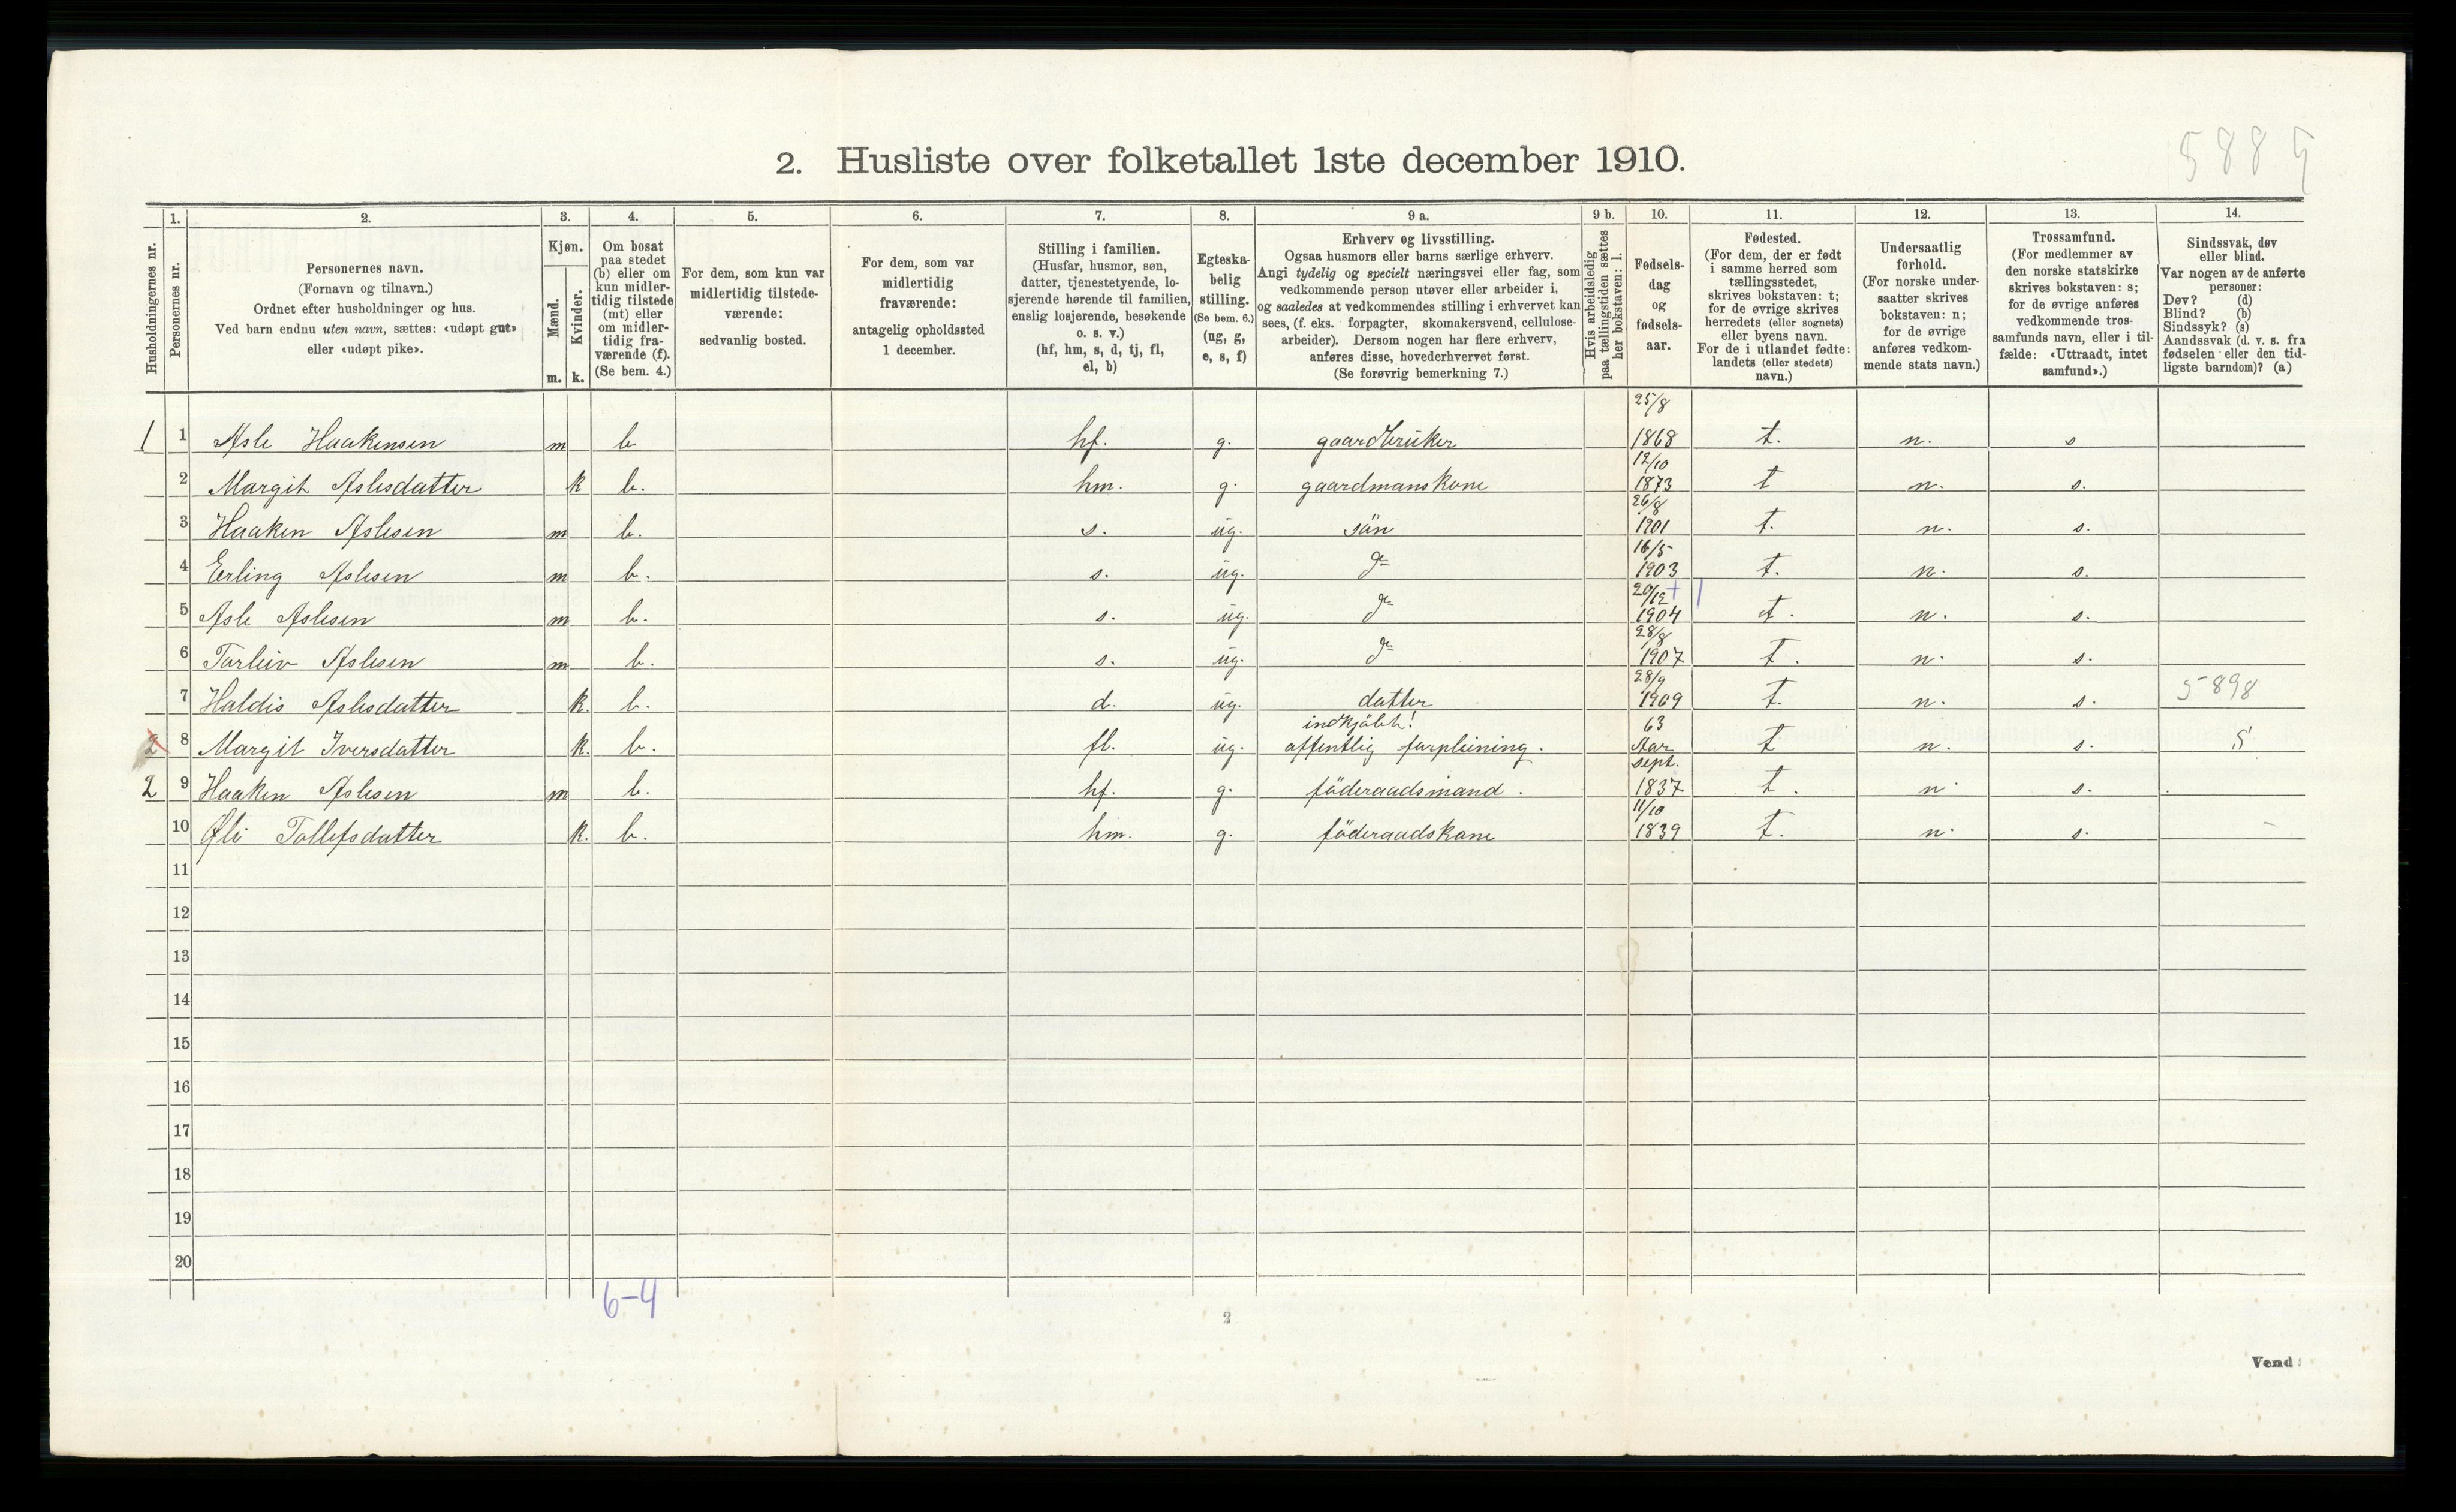 5889
2. Husliste over folketallet 1ste december 1910.
Husholdningernes nr.
1. Personernes nr.
2. Personernes navn.
(Fornavn og tilnavn.)
Ordnet efter husholdninger og hus.
Ved barn endnu uten navn, sættes: «udøpt gut»
eller «udøpt pike».
3. Kjøn.
Mænd. m.
Kvinder. k.
4. Om bosat
paa stedet
(b) eller om
kun midler-
tidig tilstede
(mt) eller
om midler-
tidig fra-
værende (f).
(Se bem. 4.)
5. For dem, som kun var
midlertidig tilstede-
værende:
sedvanlig bosted.
6. For dem, som var
midlertidig
fraværende:
antagelig opholdssted
1 december.
7. Stilling i familien.
(Husfar, husmor, søn,
datter, tjenestetyende, lo-
sjerende hørende til familien,
enslig losjerende, besøkende
o. s. v.)
(hf, hm, s, d, tj, fl,
el, b)
8. Egteska-
belig
stilling.
(Se bem. 6.)
(ug, g,
e, s, f)
9 a. Erhverv og livsstilling.
Ogsaa husmors eller barns særlige erhverv.
Angi tydelig og specielt næringsvei eller fag, som
vedkommende person utøver eller arbeider i,
og saaledes at vedkommendes stilling i erhvervet kan
sees, (f. eks. forpagter, skomakersvend, cellulose-
arbeider). Dersom nogen har flere erhverv,
anføres disse, hovederhvervet først.
(Se forøvrig bemerkning 7.)
9 b. Hvis arbeidsledig
paa tællingstiden sættes
her bokstaven: l.
10. Fødsels-
dag
og
fødsels-
aar.
11. Fødested.
(For dem, der er født
i samme herred som
tællingsstedet,
skrives bokstaven: t;
for de øvrige skrives
herredets (eller sognets)
eller byens navn.
For de i utlandet fødte:
landets (eller stedets)
navn.)
12. Undersaatlig
forhold.
(For norske under-
saatter skrives
bokstaven: n;
for de øvrige
anføres vedkom-
mende stats navn.)
13. Trossamfund.
(For medlemmer av
den norske statskirke
skrives bokstaven: s;
for de øvrige anføres
vedkommende tros-
samfunds navn, eller i til-
fælde: «Uttraadt, intet
samfund».)
14. Sindssvak, døv
eller blind.
Var nogen av de anførte
personer:
Døv? (d)
Blind? (b)
Sindssyk? (s)
Aandssvak (d. v. s. fra
fødselen eller den tid-
ligste barndom)? (a)
1 1 Asle Haakensen m b hf. g. gaardbruker 25/8 1868 t. n. s
2 Margit Aslesdatter k b. hm. g. gaardmanskone 12/10 1873 t n. s.
3 Haaken Aslesen m b. s. ug. sön 26/8 1901 t. n. s.
4 Erling Aslesen m b. s. ug. do 16/5 1903 t. n. s.
5 Asle Aslesen m b. s. ug. do 20/12 1904 t. n. s.
6 Torleiv Aslesen m b. s. ug. do 28/8 1907 t. n. s.
7 Haldis Aslesdatter k. b. d. ug. datter 28/9 1909 t. n. s. 5898
2 8 Margit Iversdatter k. b. fl. ug. offentlig forpleining. 63 Aar t n. s. S
2 9 Haaken Aslesen m b. hf. g. föderaadsmand. Sept. 1837 t. n. s.
10 Øli Tollefsdatter k. b. hm. g. föderaadskone 11/10 1839 t. n. s.
11
12
13
14
15
16
17
18
19
20
6-4
2
Vend!